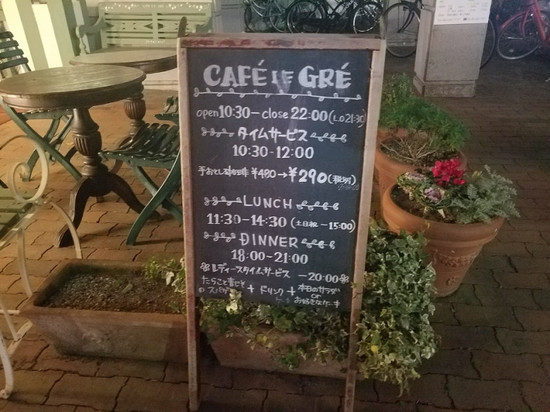 CAFÉ LE GRÉ
open 10:30-close 22:00(L.o21:30)
タイムサービス
10:30-12:00
手おとし珈琲 ¥480→¥290(税別)
LUNCH
11:30-14:30(土日祝-15:00)
DINNER
18:00-21:00
レディースタイムサービス -20:00
たらこと青じその スパゲ + ドリンク + 本日のサラダ or お好きなケーキ